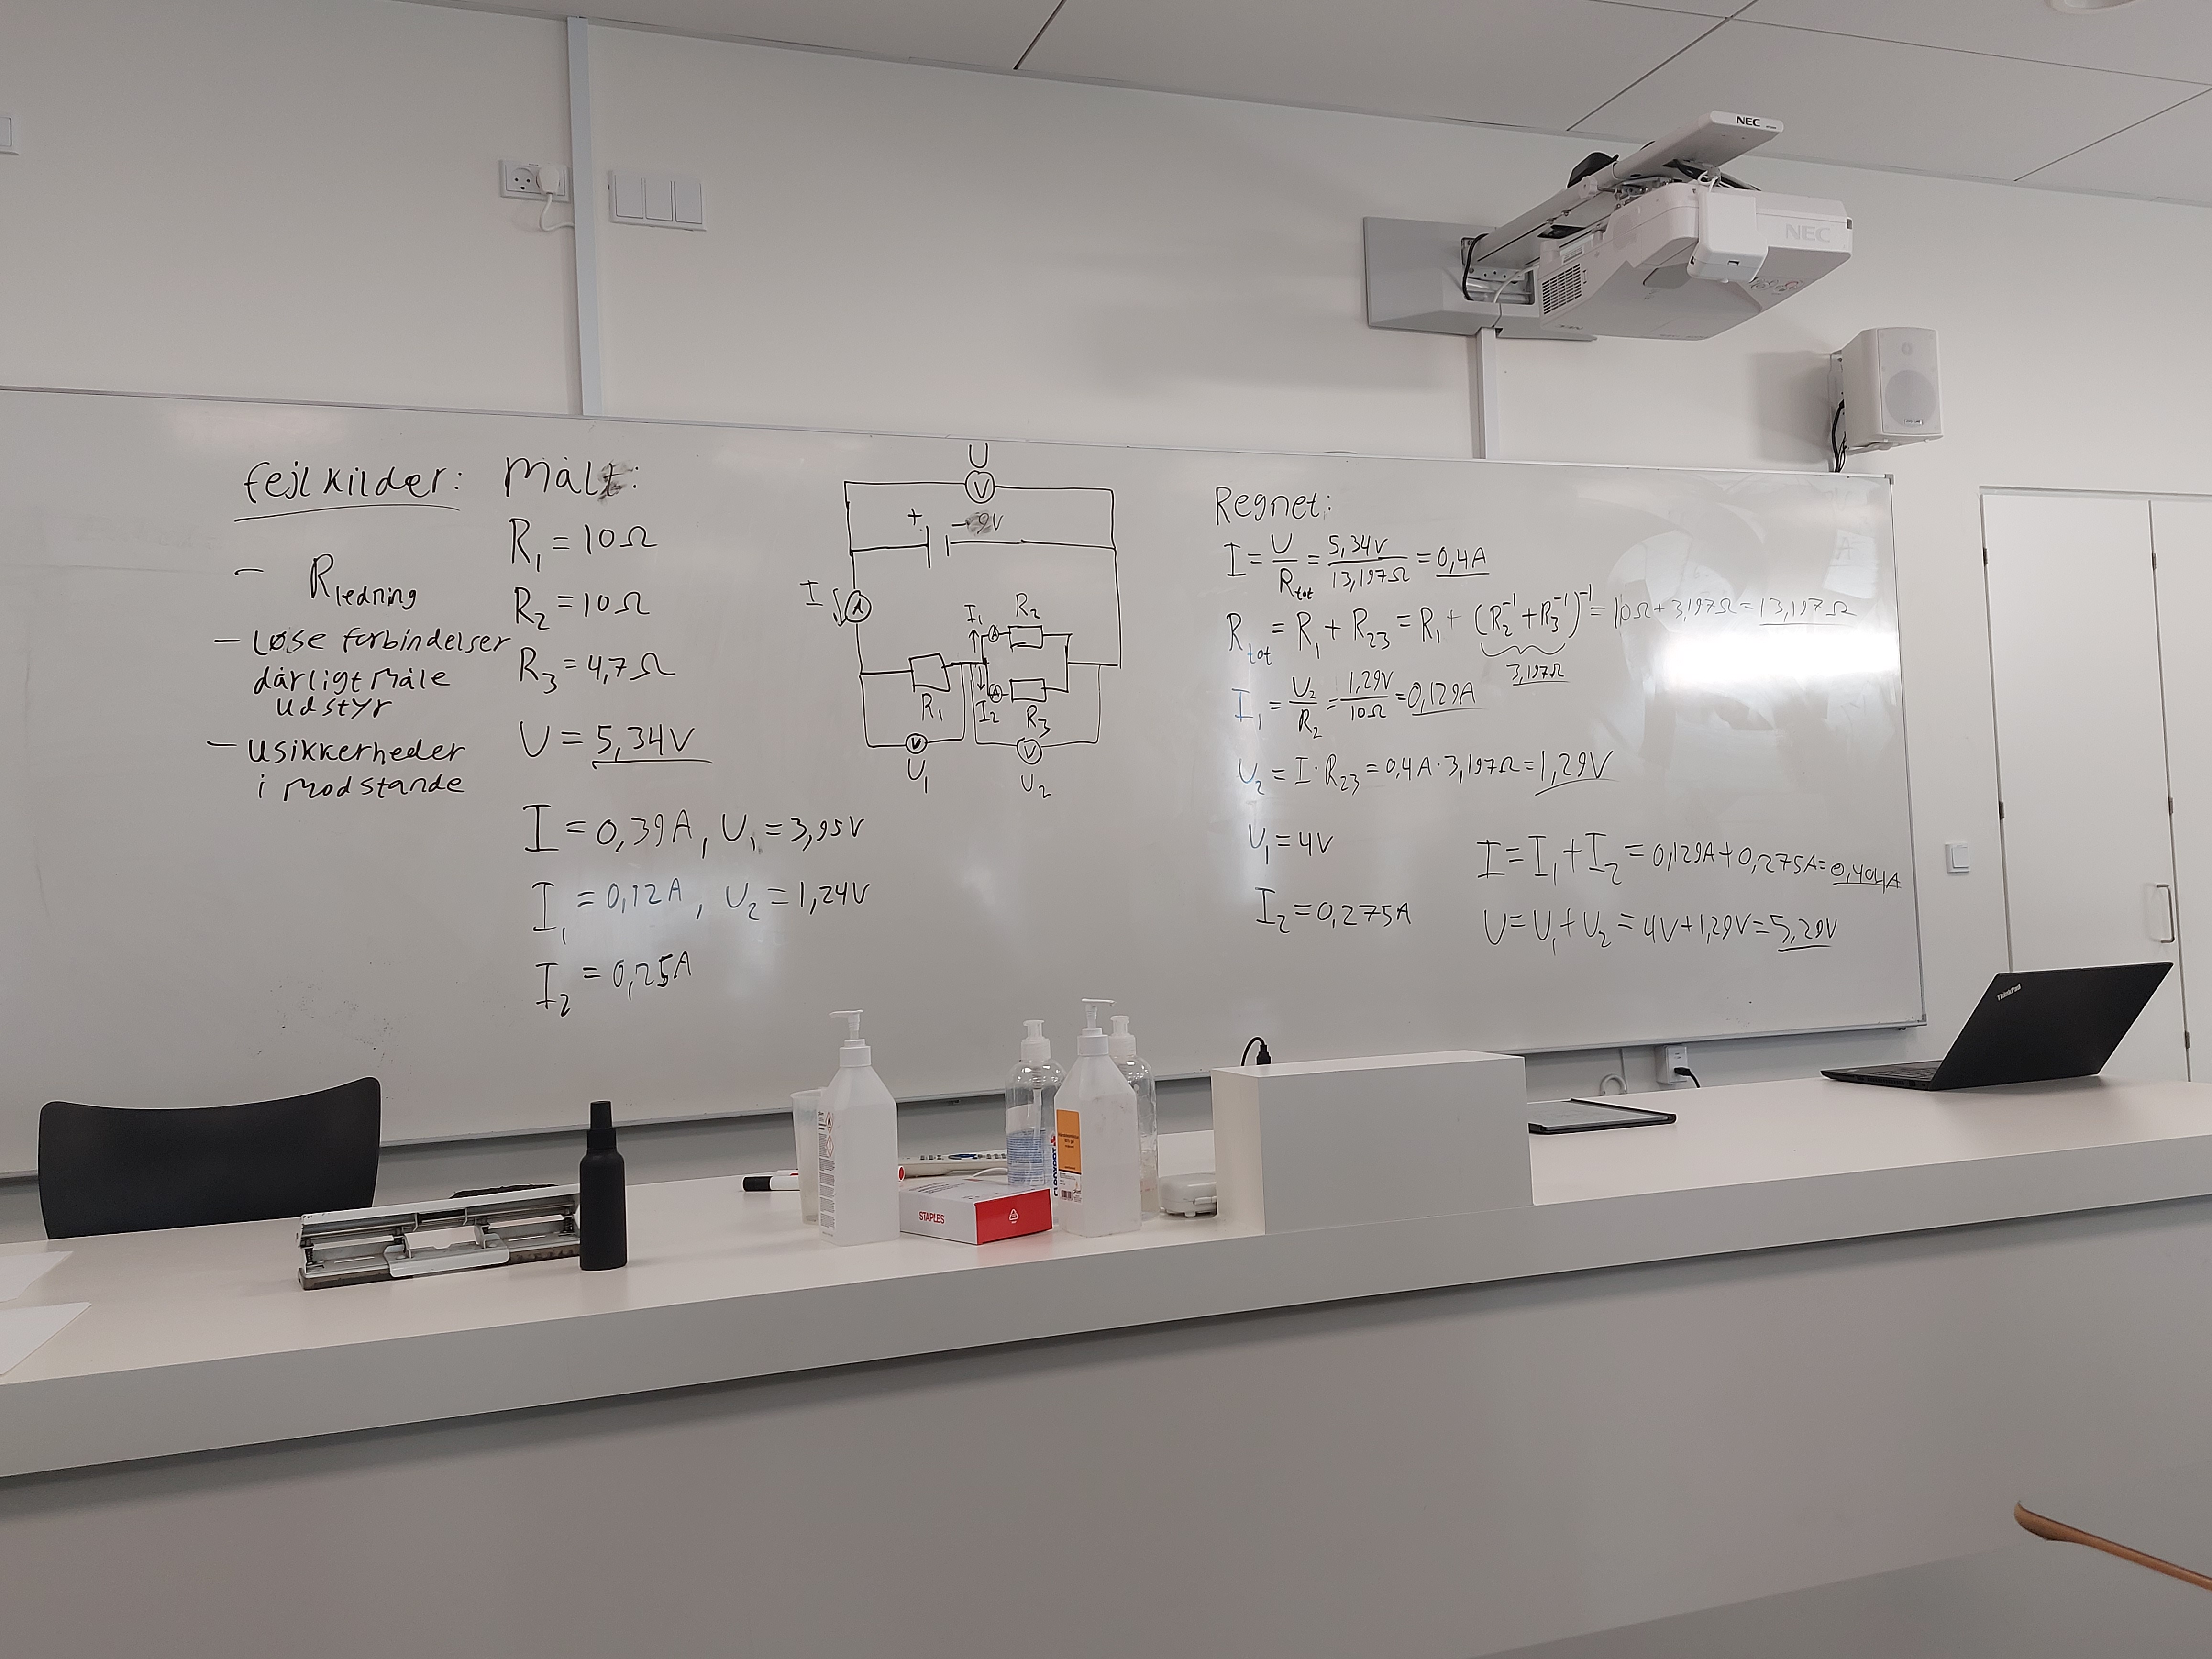 NEC
NEC
fejlkilder:
- Rledning
- Løse forbindelser
dårligt måle
udstyr
- Usikkerheder
i modstande
Målt:
R₁ = 10Ω
R₂ = 10Ω
R₃ = 4,7Ω
U = 5,34V
I = 0,39A, U₁ = 3,95V
I₁ = 0,12A, U₂ = 1,24V
I₂ = 0,25A
U
V
+ - 9V
I
A
I₁
R₂
R₁
I₂
R₃
V
U₁
V
U₂
Regnet:
I = U/Rtot = 5,34V/13,197Ω = 0,4A
Rtot = R₁ + R₂₃ = R₁ + (R₂⁻¹ + R₃⁻¹)⁻¹ = 10Ω + 3,197Ω = 13,197Ω
3,197Ω
I₁ = U₂/R₂ = 1,29V/10Ω = 0,129A
U₂ = I · R₂₃ = 0,4A · 3,197Ω = 1,29V
U₁ = 4V
I₂ = 0,275A
I = I₁ + I₂ = 0,129A + 0,275A = 0,404A
U = U₁ + U₂ = 4V + 1,29V = 5,29V
ThinkPad
STAPLES